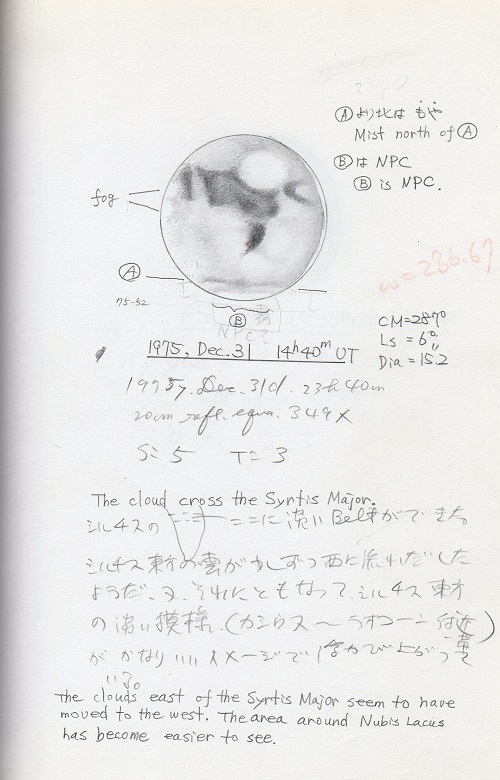 Ⓐより北は もや
Mist north of Ⓐ
ⒷはNPC
Ⓑ is NPC.
fog
Ⓐ
75-52
Ⓑ
NPC
ω=286.67
CM=287°
Ls = 6°
Dia = 15.2
1975, Dec. 31 14h40m UT
1975y. Dec. 31d. 23h 40m
20cm refl. equa. 349X
S= 5 T= 3
The cloud cross the Syrtis Major.
シルチスの ここに淡いBeltができた
シルチス東方の雲が少しずつ西に流れだした
ようだ、又、それにともなって、シルチス東方
の淡い模様、(カシウス～ラオコーン付近)
が かなりいいイメージで浮かび上がって
いる。
The clouds east of the Syrtis Major seem to have
moved to the west. The area around Nubis Lacus
has become easier to see.